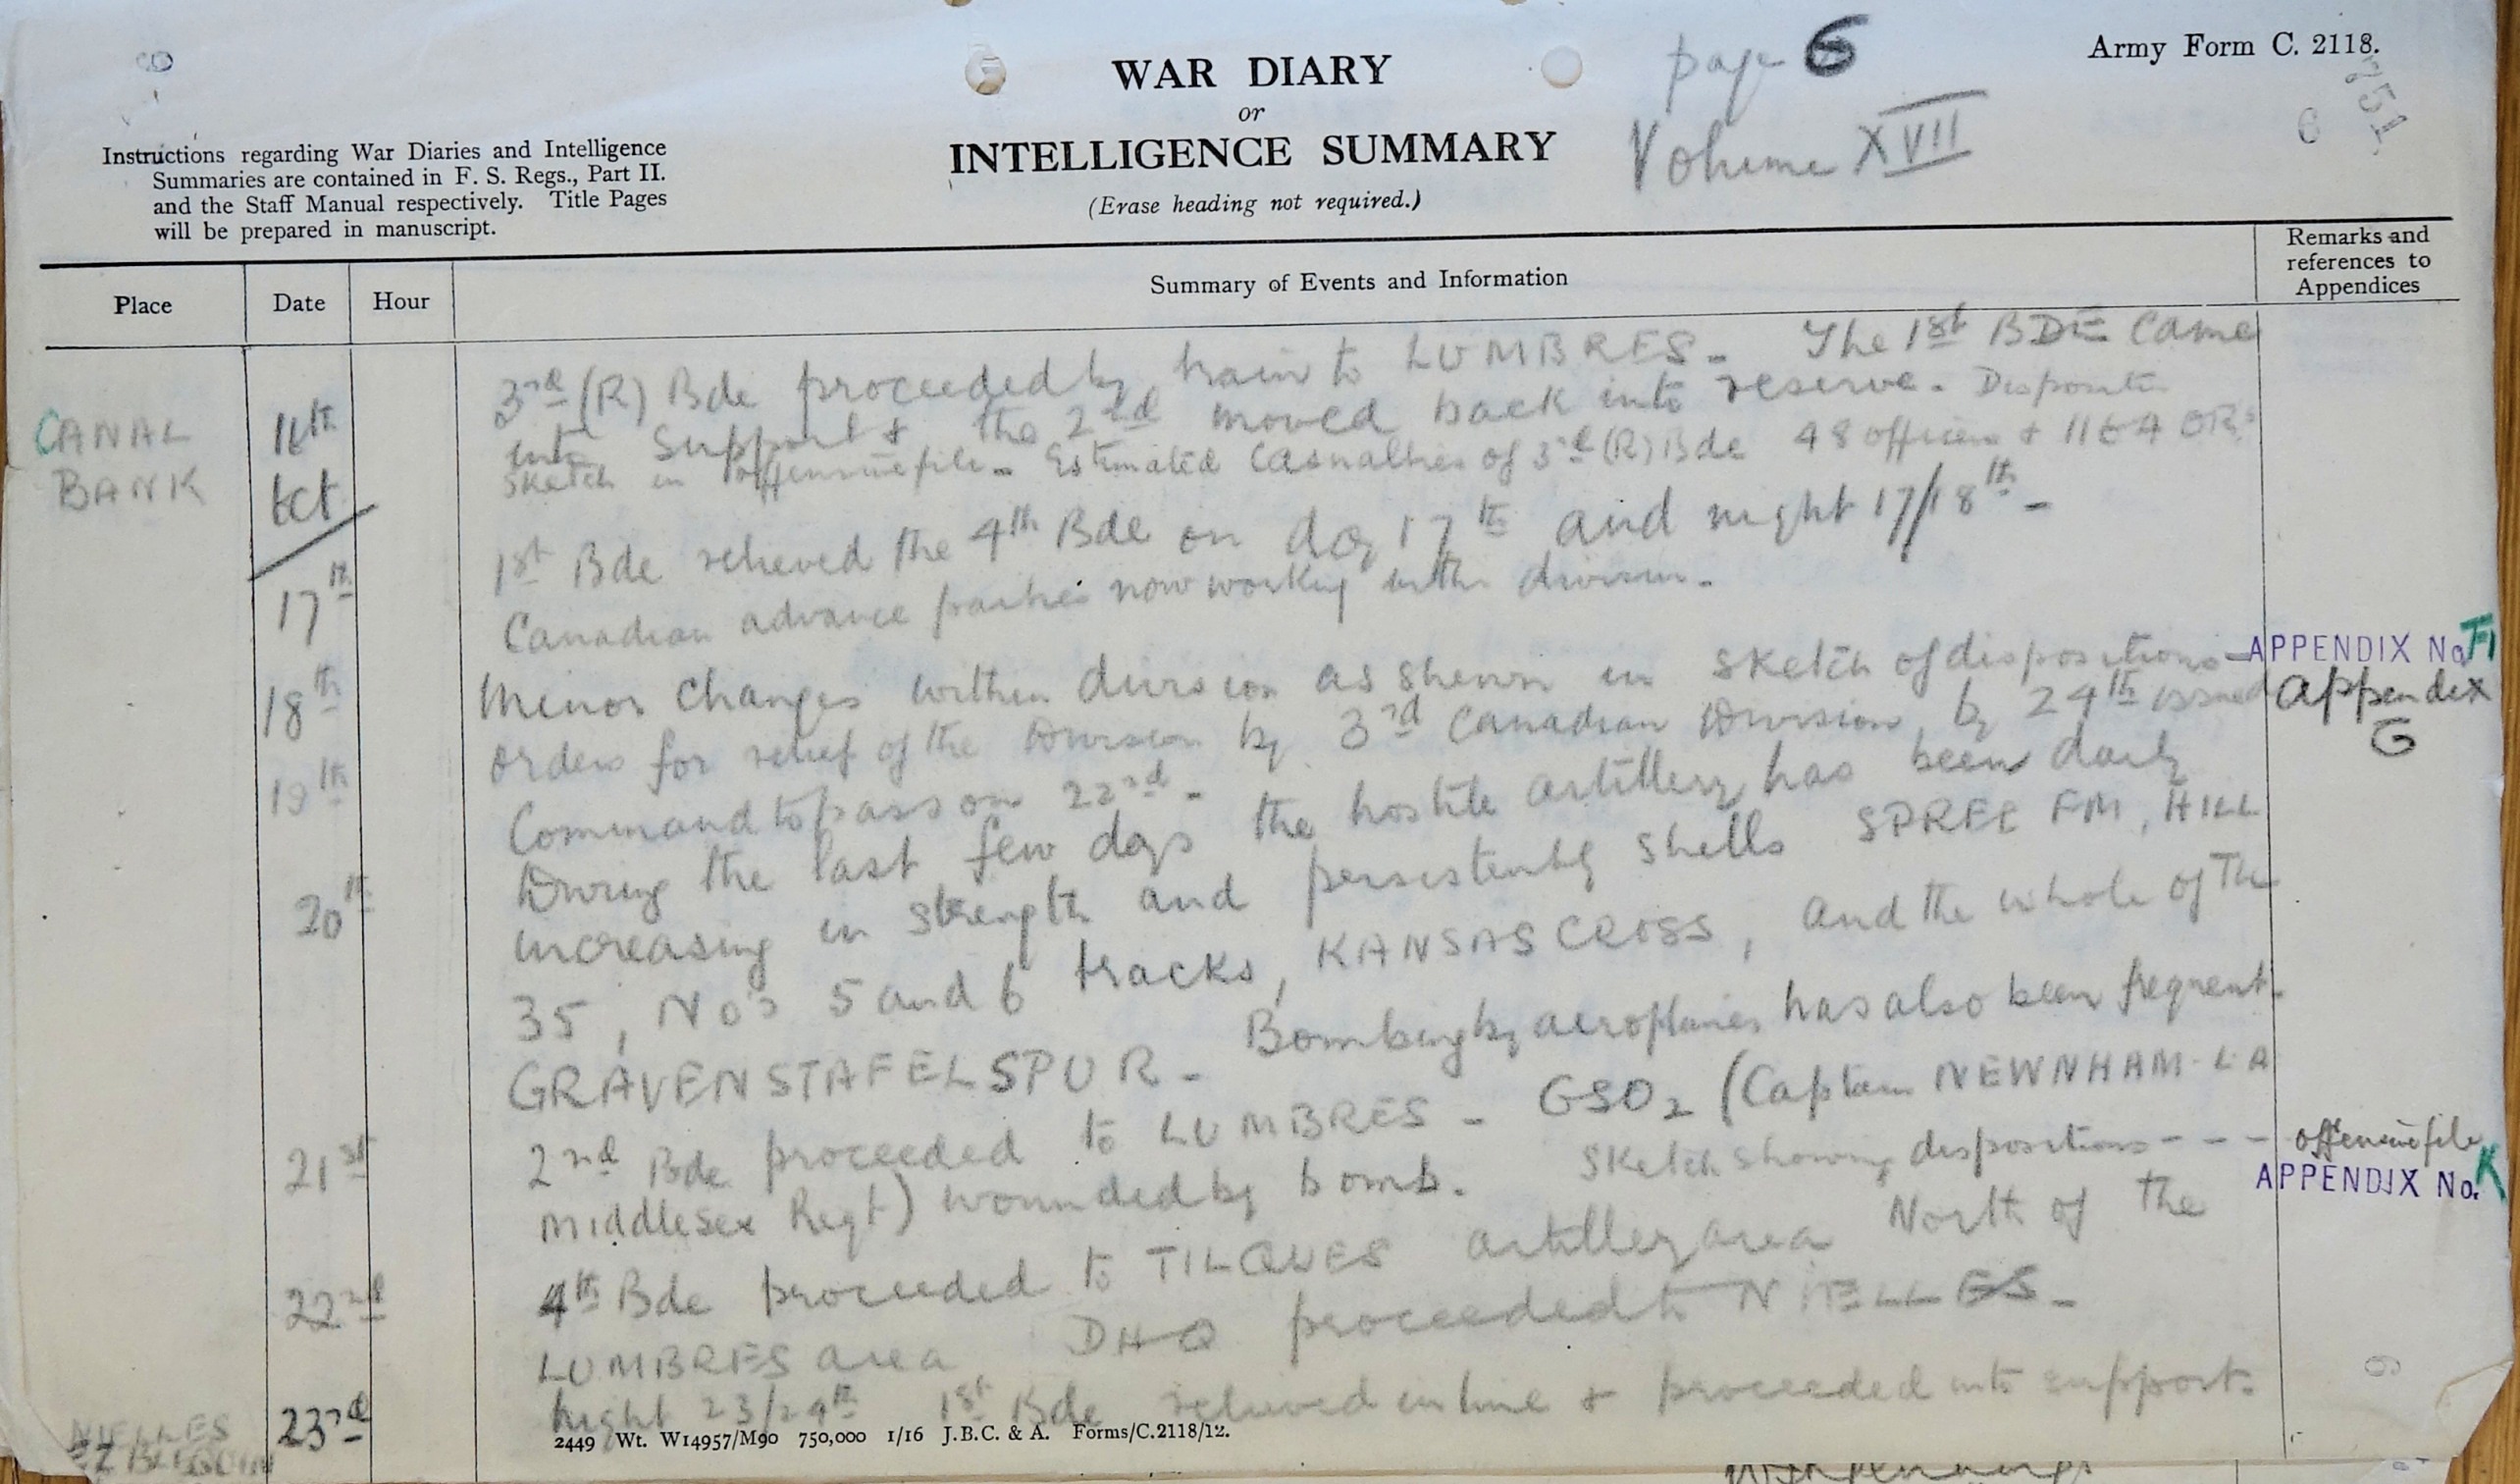 page 6
Army Form C. 2118.
WAR DIARY
or
INTELLIGENCE SUMMARY
(Erase heading not required.)
Volume XVII
6
751
Instructions regarding War Diaries and Intelligence
Summaries are contained in F. S. Regs., Part II.
and the Staff Manual respectively. Title Pages
will be prepared in manuscript.
Place
Date
Hour
Summary of Events and Information
Remarks and
references to
Appendices
CANAL
BANK
16th
Oct
3rd (R) Bde proceeded by train to LUMBRES - The 1st BDE came
into Support & the 2nd moved back into reserve. Disposition
sketch in offensive file - Estimated Casualties of 3rd (R) Bde 48 officers & 1164 ORs
17th
1st Bde relieved the 4th Bde on day 17th and night 17/18th -
Canadian advance parties now working with division -
18th
Minor changes within division as shewn in sketch of dispositions - APPENDIX No. F1
19th
orders for relief of the Division by 3rd Canadian Division by 24th issued Appendix G
Command to pass on 22nd -
20th
During the last few days the hostile artillery has been daily
increasing in strength and persistently shells SPREE FM, HILL
35, No's 5 and 6 tracks, KANSAS CROSS, and the whole of the
GRAVENSTAFEL SPUR - Bombing by aeroplanes has also been frequent.
21st
2nd Bde proceeded to LUMBRES - GSO2 (Captain NEWNHAM
Middlesex Regt) wounded by bomb. Sketch showing dispositions - - - offensive file
APPENDIX No. K
22nd
4th Bde proceeded to TILQUES artillery area North of the
LUMBRES area DHQ proceeded to NIELLES -
NIELLES
23rd
Night 23/24th 1st Bde relieved in line & proceeded into support.
2449 Wt. W14957/M90 750,000 1/16 J.B.C. & A. Forms/C.2118/12.